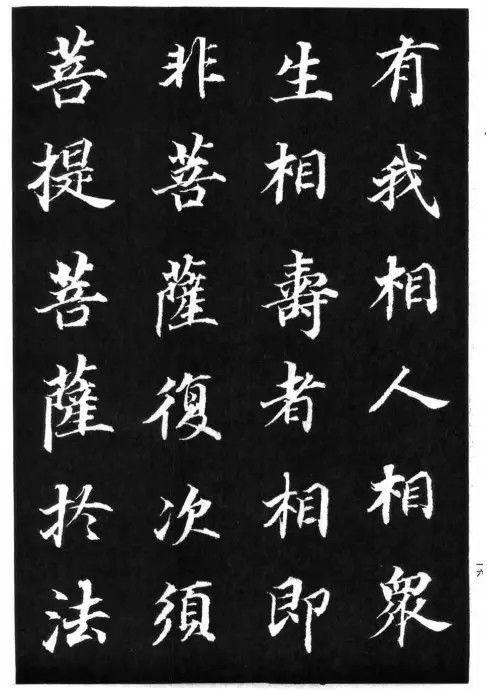 有我相人相衆
生相壽者相即
非菩薩復次須
菩提菩薩於法
一六